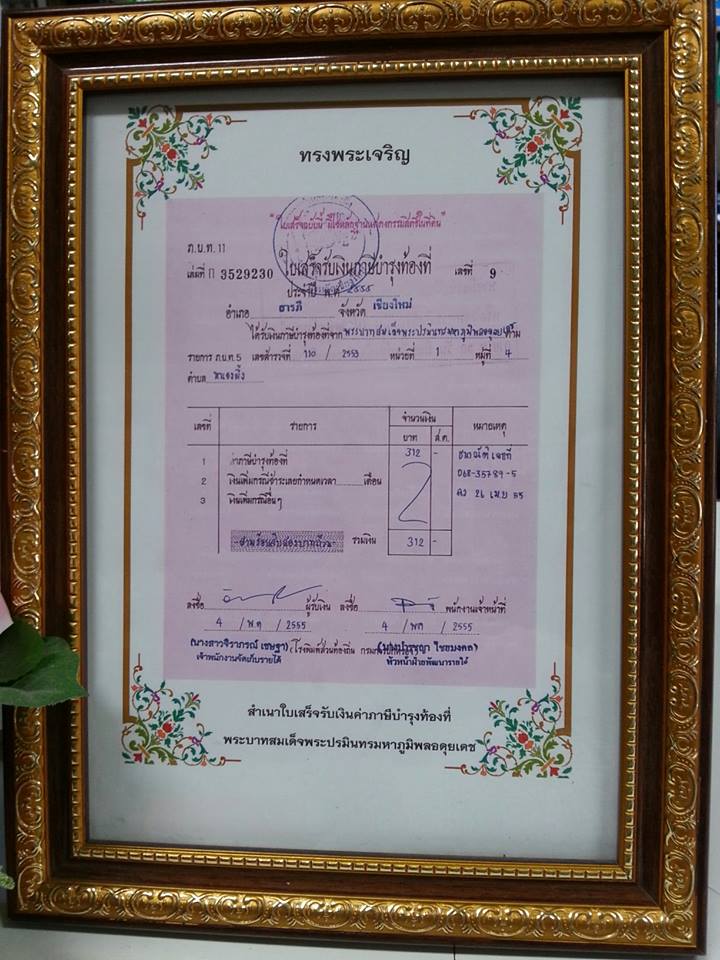 ทรงพระเจริญ
"ใบเสร็จฉบับนี้ มิใช่หลักฐานแสดงกรรมสิทธิ์ในที่ดิน"
ภ.บ.ท. 11
เล่มที่ ก 3529230 ใบเสร็จรับเงินภาษีบำรุงท้องที่ เลขที่ 9
ประจำปี พ.ศ. 2555
อำเภอ สารภี จังหวัด เชียงใหม่
ได้รับเงินภาษีบำรุงท้องที่จาก พระบาทสมเด็จพระปรมินทรมหาภูมิพลอดุลยเดช ตาม
รายการ ภ.บ.ท. 5 เลขสำรวจที่ 110 / 2553 หน่วยที่ 1 หมู่ที่ 4
ตำบล หนองผึ้ง
เลขที่ รายการ จำนวนเงิน หมายเหตุ
บาท ส.ต.
1 ค่าภาษีบำรุงท้องที่ 312 - ธนาณัติเลขที่
2 เงินเพิ่มกรณีชำระเลยกำหนดเวลา......เดือน 068-35789-5
3 เงินเพิ่มกรณีอื่นๆ ลว 26 เมย 55
-สามร้อยสิบสองบาทถ้วน- รวมเงิน 312 -
ลงชื่อ ผู้รับเงิน ลงชื่อ พนักงานเจ้าหน้าที่
4 / พ.ค / 2555 4 / พค / 2555
(นางสาวจิราภรณ์ เชษฐา) (โรงพิมพ์ส่วนท้องถิ่น ไชยมงคล)
เจ้าพนักงานจัดเก็บรายได้ หัวหน้าฝ่ายพัฒนารายได้
สำเนาใบเสร็จรับเงินค่าภาษีบำรุงท้องที่
พระบาทสมเด็จพระปรมินทรมหาภูมิพลอดุยเดช